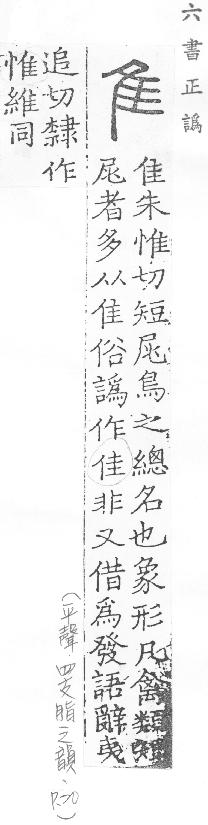 六書正譌
隹
隹朱惟切短𡲵鳥之總名也象形凡禽類短
𡲵者多从隹俗譌作佳非又借爲發語辭夷
追切隸作
惟維同
(平聲 四支脂之韻、P.20)